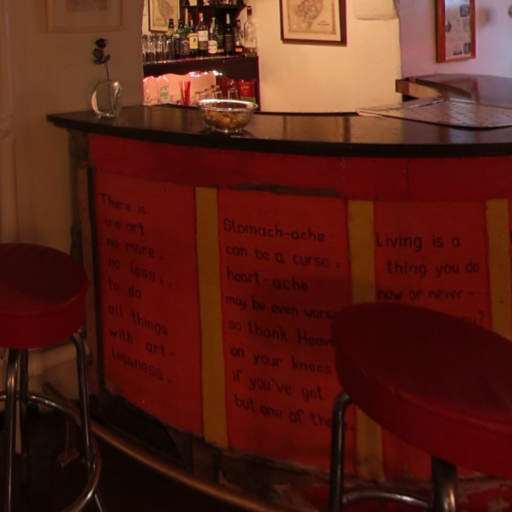 There is
one art
no more,
no less:
to do
all things
with art-
lessness.
Stomach-ache
can be a curse;
heart-ache
may be even worse
so thank
on your knees
if you've got
but one of the
Living is a
thing you do
now or never -